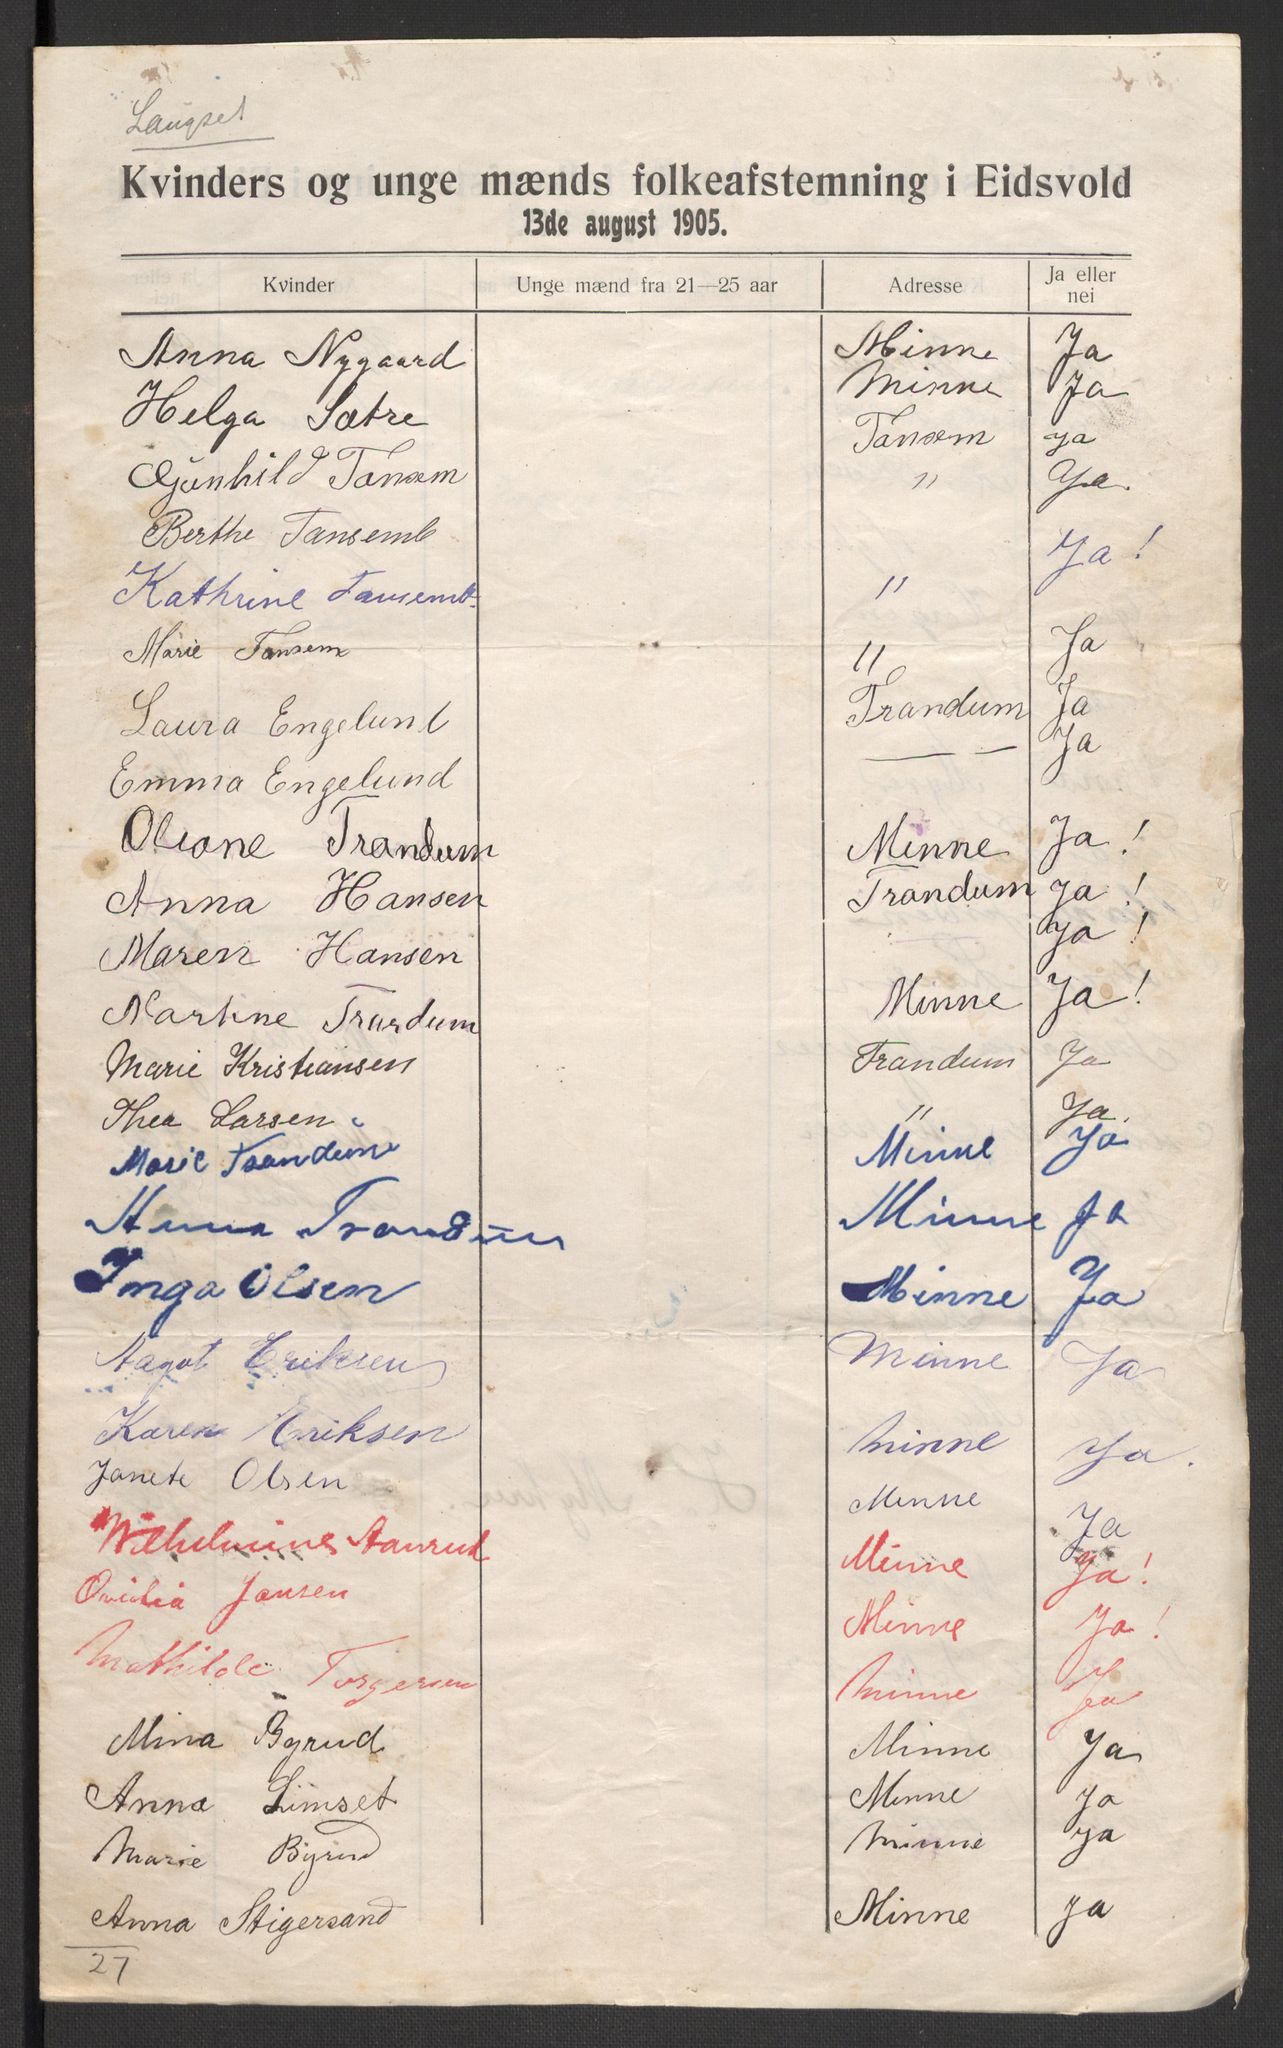 Laugset
Kvinders og unge mænds folkeafstemning i Eidsvold
13de august 1905.
Kvinder Unge mænd fra 21—25 aar Adresse Ja eller nei
Anna Nygaard Minne Ja
Helga Sætre Minne Ja
Gunhild Tansem Tansem Ja
Berthe Tansemb " Ja.
Kathrine Tansemb " Ja!
Marie Tansem " Ja
Laura Engelund Trandum Ja
Emma Engelund — — Ja
Oleane Trandum Minne Ja!
Anna Hansen Trandum Ja!
Maren Hansen Ja!
Martine Trandum Minne Ja!
Marie Kristiansen Trandum Ja
Thea Larsen " Ja.
Marie Trandum Minne Ja
Anna Trandum Minne Ja
Inga Olsen Minne Ja
Aagot Eriksen Minne Ja
Karen Eriksen Minne Ja.
Janete Olsen Minne Ja
Wilhelmine Aanrud Minne Ja!
Ovidia Jansen Minne Ja!
Mathilde Torgersen Minne Ja
Mina Byrud Minne Ja
Anna Limset Minne Ja
Marie Byrud Minne Ja
Anna Stigersand Minne Ja
27